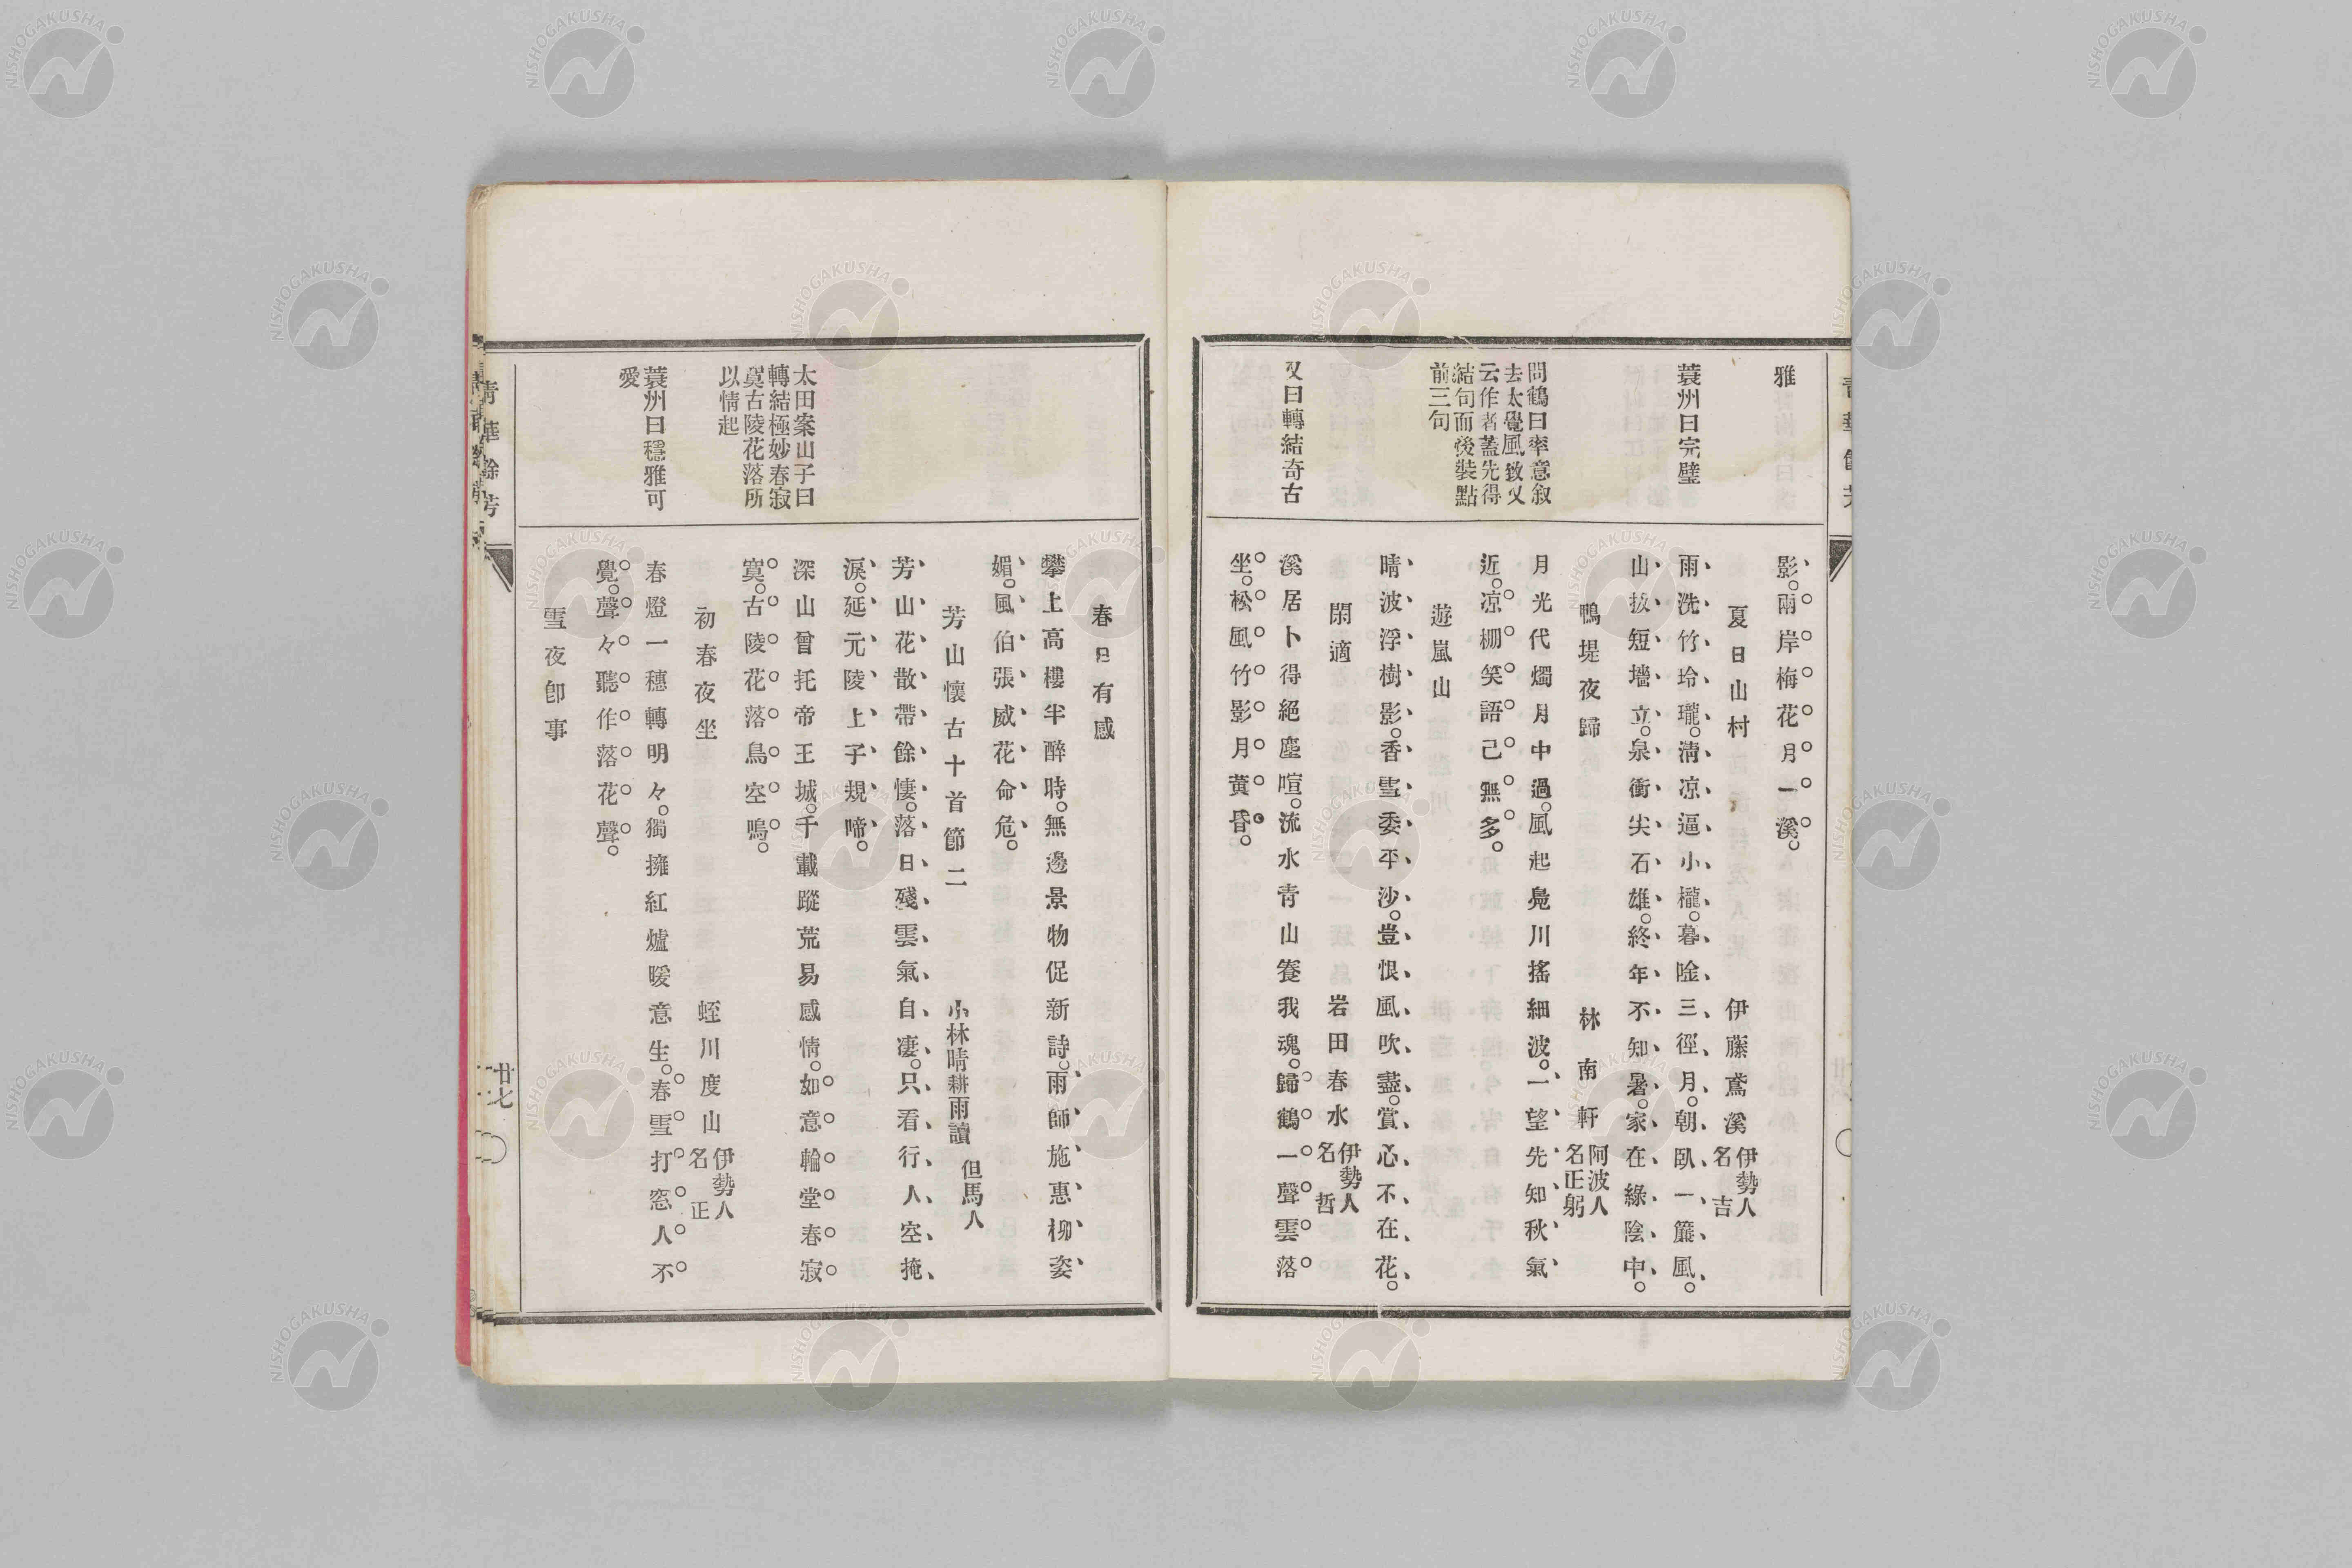 雅
影。兩岸梅花月一溪。
夏日山村
伊藤鳶溪
伊勢人
名吉
蓑州曰完璧
雨洗竹玲瓏。淸凉逼小櫳。暮陰三徑月。朝臥一簾風。
山拔短墻立。泉衝尖石雄。終年不知暑。家在綠陰中。
鴨堤夜歸
林南軒
阿波人
名正躬
問鶴曰率意敘
去太覺風致又
云作者蓋先得
結句而後裝點
前三句
月光代燭月中過。風起鳧川搖細波。一望先知秋氣
近。凉棚笑語已無多。
遊嵐山
晴波浮樹影。香雪委平沙。豈恨風吹盡。賞心不在花。
閑適
岩田春水
伊勢人
名哲
又曰轉結奇古
溪居卜得絕塵喧。流水靑山養我魂。歸鶴一聲雲落
坐。松風竹影月黃昏。
春日有感
攀上高樓半醉時。無邊景物促新詩。雨師施惠柳姿
媚。風伯張威花命危。
芳山懷古十首節二
小林晴耕雨讀
但馬人
芳山花散帶餘悽。落日殘雲氣自凄。只看行人空掩
淚。延元陵上子規啼。
太田案山子曰
轉結極妙春寂
寞古陵花落所
以情起
深山曾托帝王城。千載蹤荒易感情。如意輪堂春寂
寞。古陵花落鳥空鳴。
初春夜坐
蛭川度山
伊勢人
名正
蓑州曰穩雅可
愛
春燈一穗轉明々。獨擁紅爐暖意生。春雪打窓人不
覺。聲々聽作落花聲。
雪夜卽事
淸華餘芳
廿七